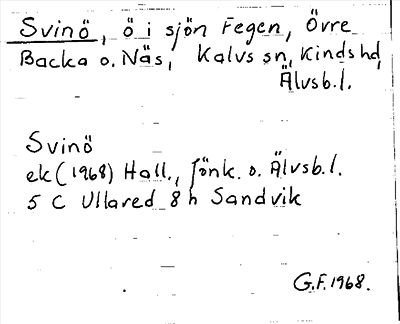 Svinö, ö i sjön Fegen, Övre
Backa o. Näs, Kalvs sn, Kinds hd,
Älvsb. l.
Svinö
ek (1968) Hall., Jönk. o. Älvsb. l.
5 C Ullared 8 h Sandvik
G.F. 1968.